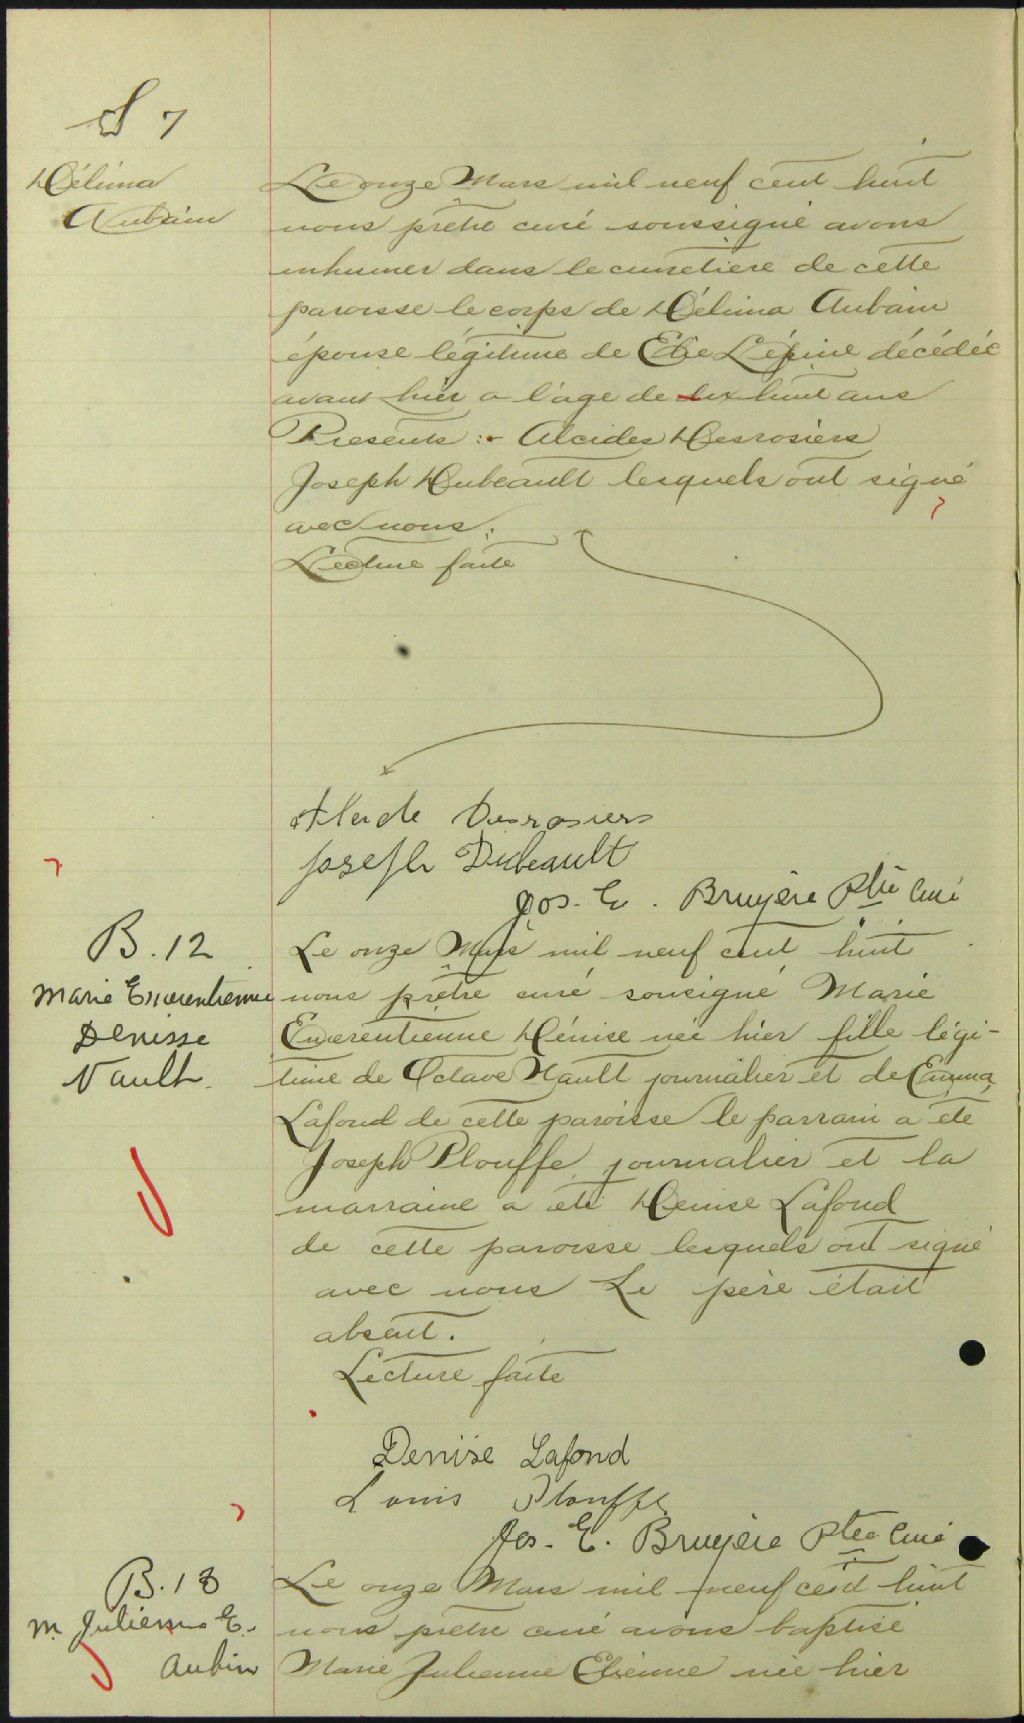 S 7
Délima
Aubin
Le onze Mars mil neuf cent huit
nous prêtre curé soussigné avons
inhumer dans le cimetiere de cette
paroisse le corps de Délima Aubin
épouse légitime de Lépine décédée
avant hier a l'age de huit ans
Présents :- Alcides Desrosiers
Joseph Dubeault lesquels ont signé
avec nous.
Lecture faite
Alcide Desrosiers
Joseph Dubeault
Jos. E. Bruyère Ptre Curé
B. 12
Marie
Denisse
Nault
Le onze Mars mil neuf cent huit
nous prêtre curé sousigné Marie
Dénise née hier fille légi-
time de Octave Nault journalier et de Emma
Lafond de cette paroisse le parrain a été
Joseph Plouffe journalier et la
marraine a été Denise Lafond
de cette paroisse lesquels ont signé
avec nous Le père était
absent.
Lecture faite
Denise Lafond
Louis Plouffe
Jos. E. Bruyère Ptre Curé
B. 13
M. Julienne E.
Aubin
Le onze Mars mil neuf cent huit
nous prêtre curé avons baptisé
Marie Julienne née hier